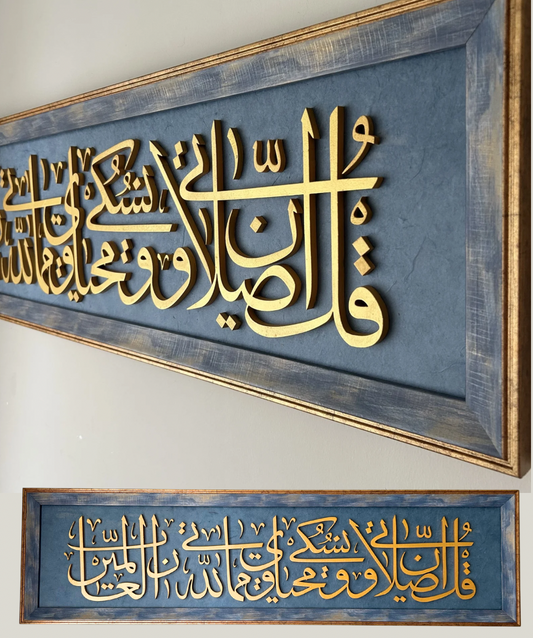 قل ان صلاتي ونسكي ومحياي ومماتي لله
قل ان صلاتي ونسكي ومحياي ومماتي لله رب العالمين